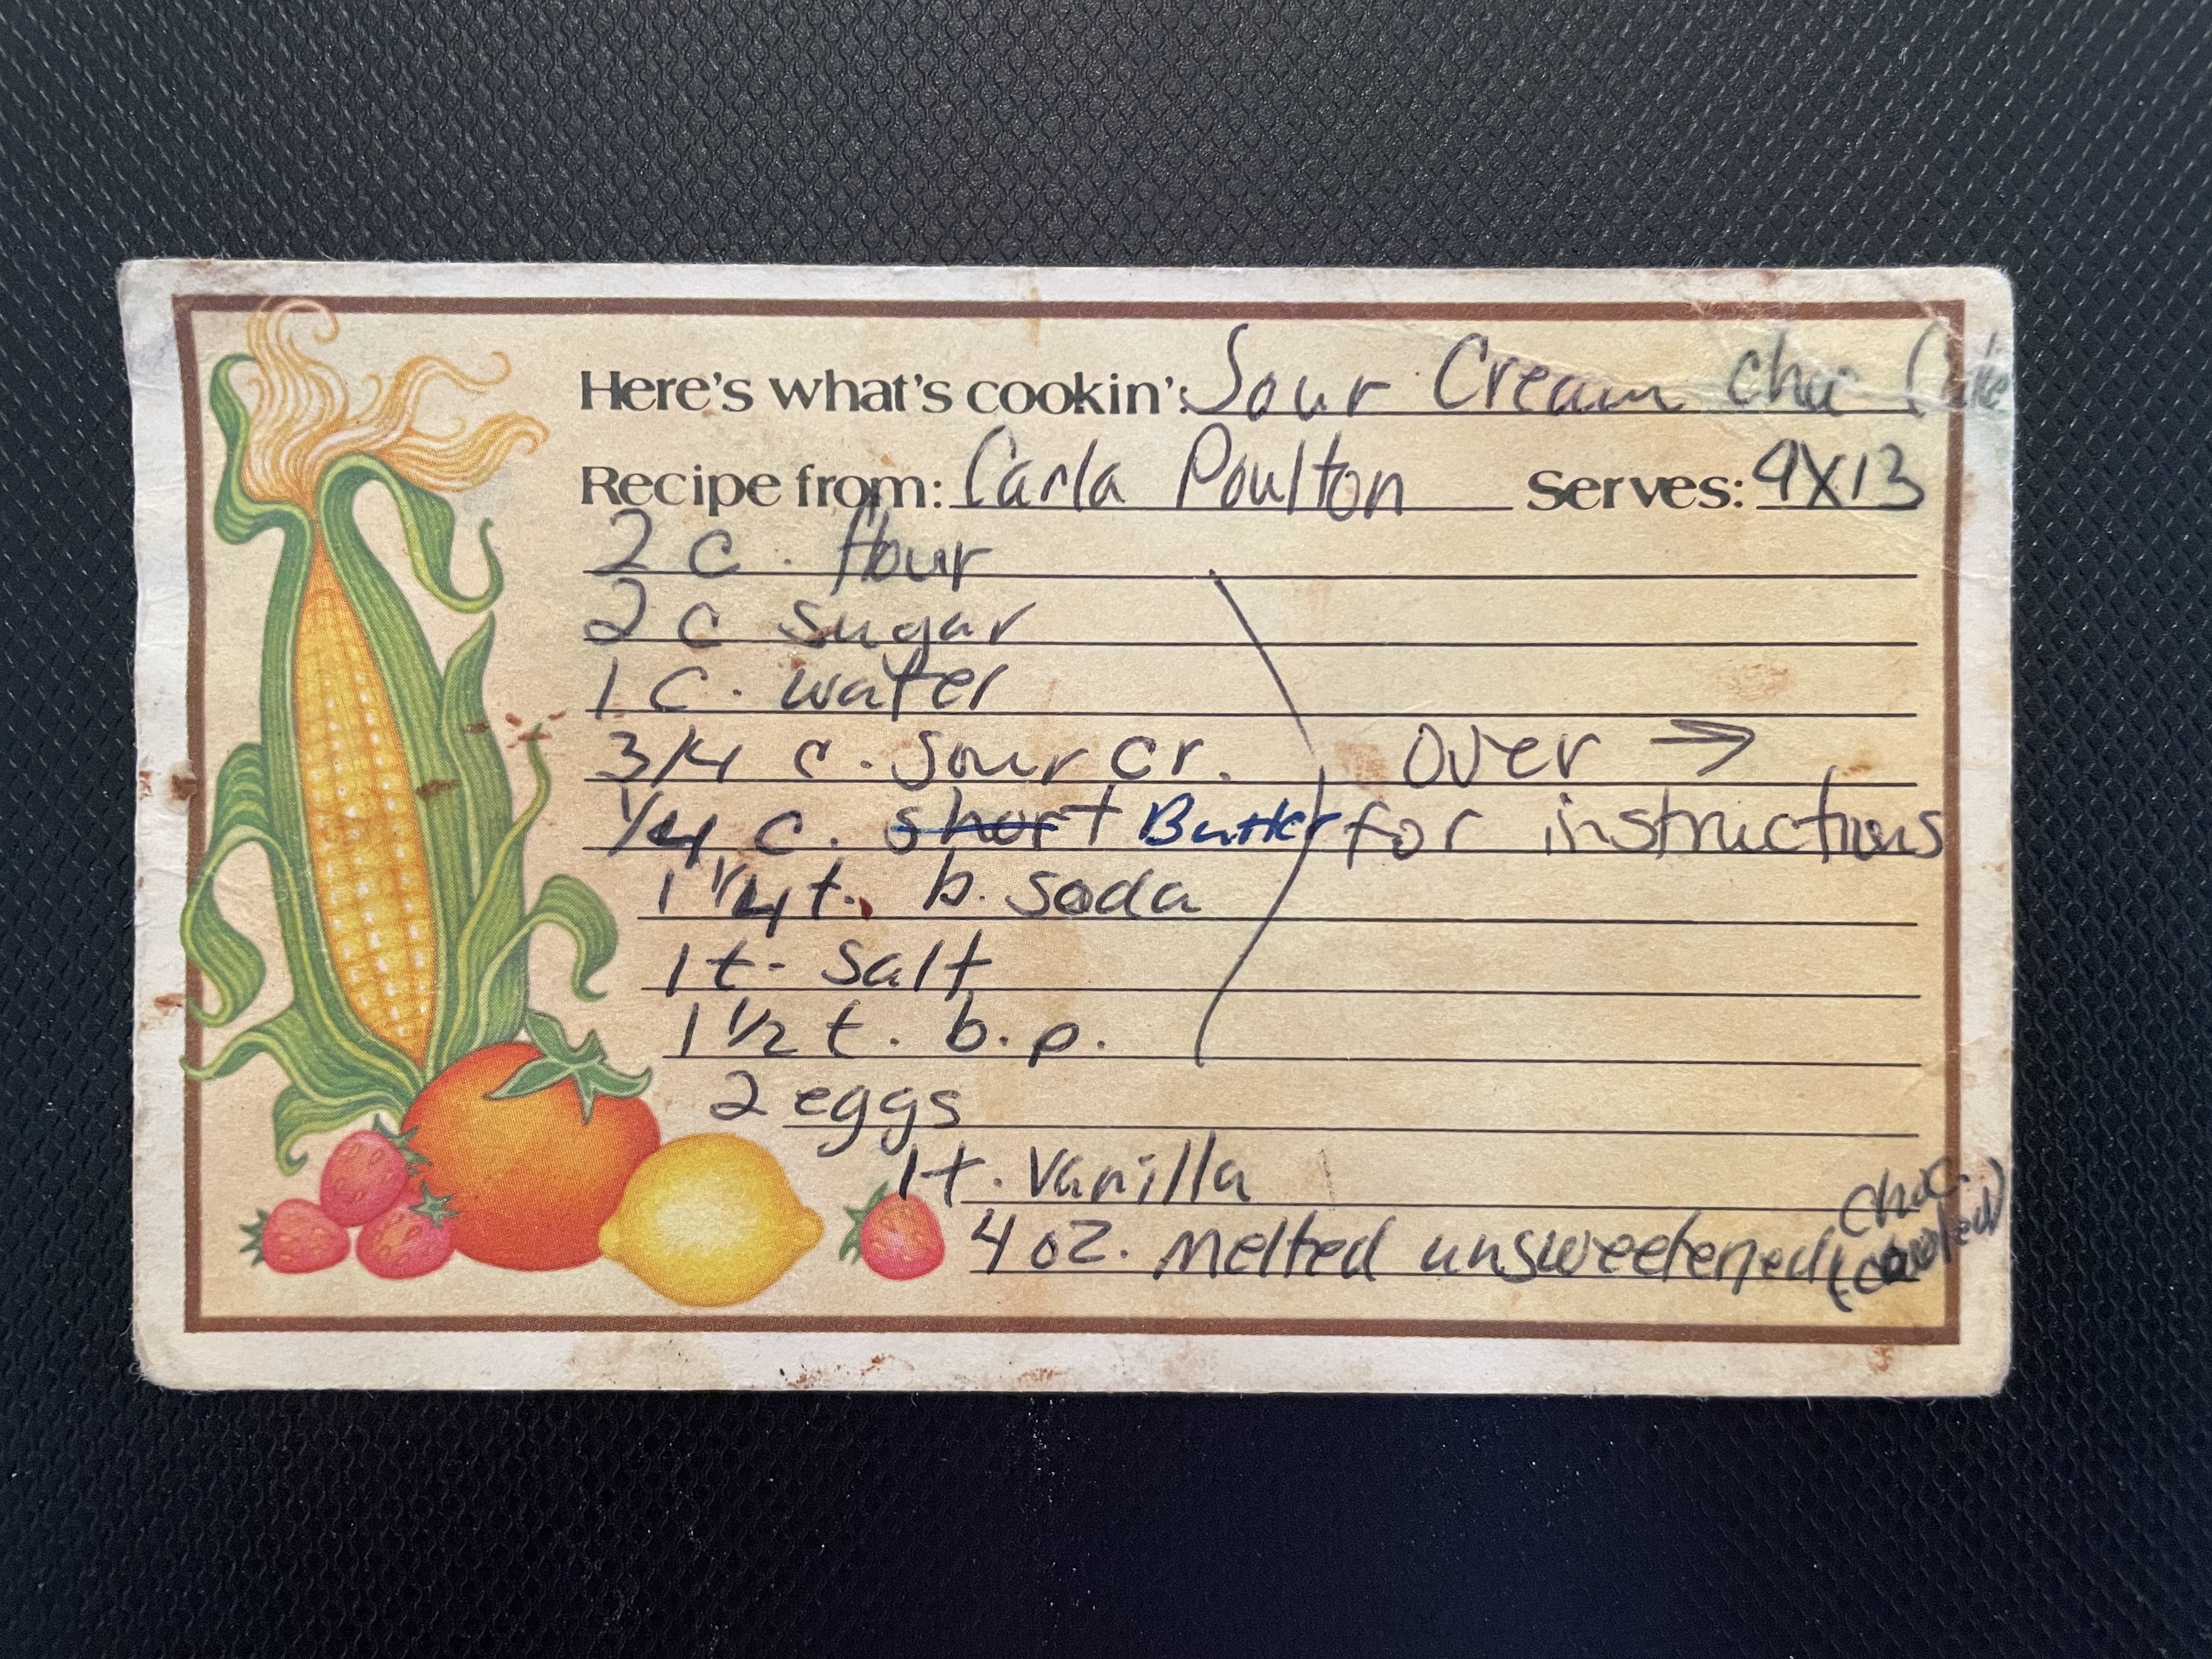 Here's what's cookin': Sour Cream choc Cake
Recipe from: Carla Poulton Serves: 9X13
2 c. flour
2 c sugar
1 c. water
3/4 c. sour cr. Over →
1/4 c. short Butter for instructions
1 1/4 t. b. soda
1 t. salt
1 1/2 t. b.p.
2 eggs
1 t. vanilla
4 oz. melted unsweetened choc. (cooled)